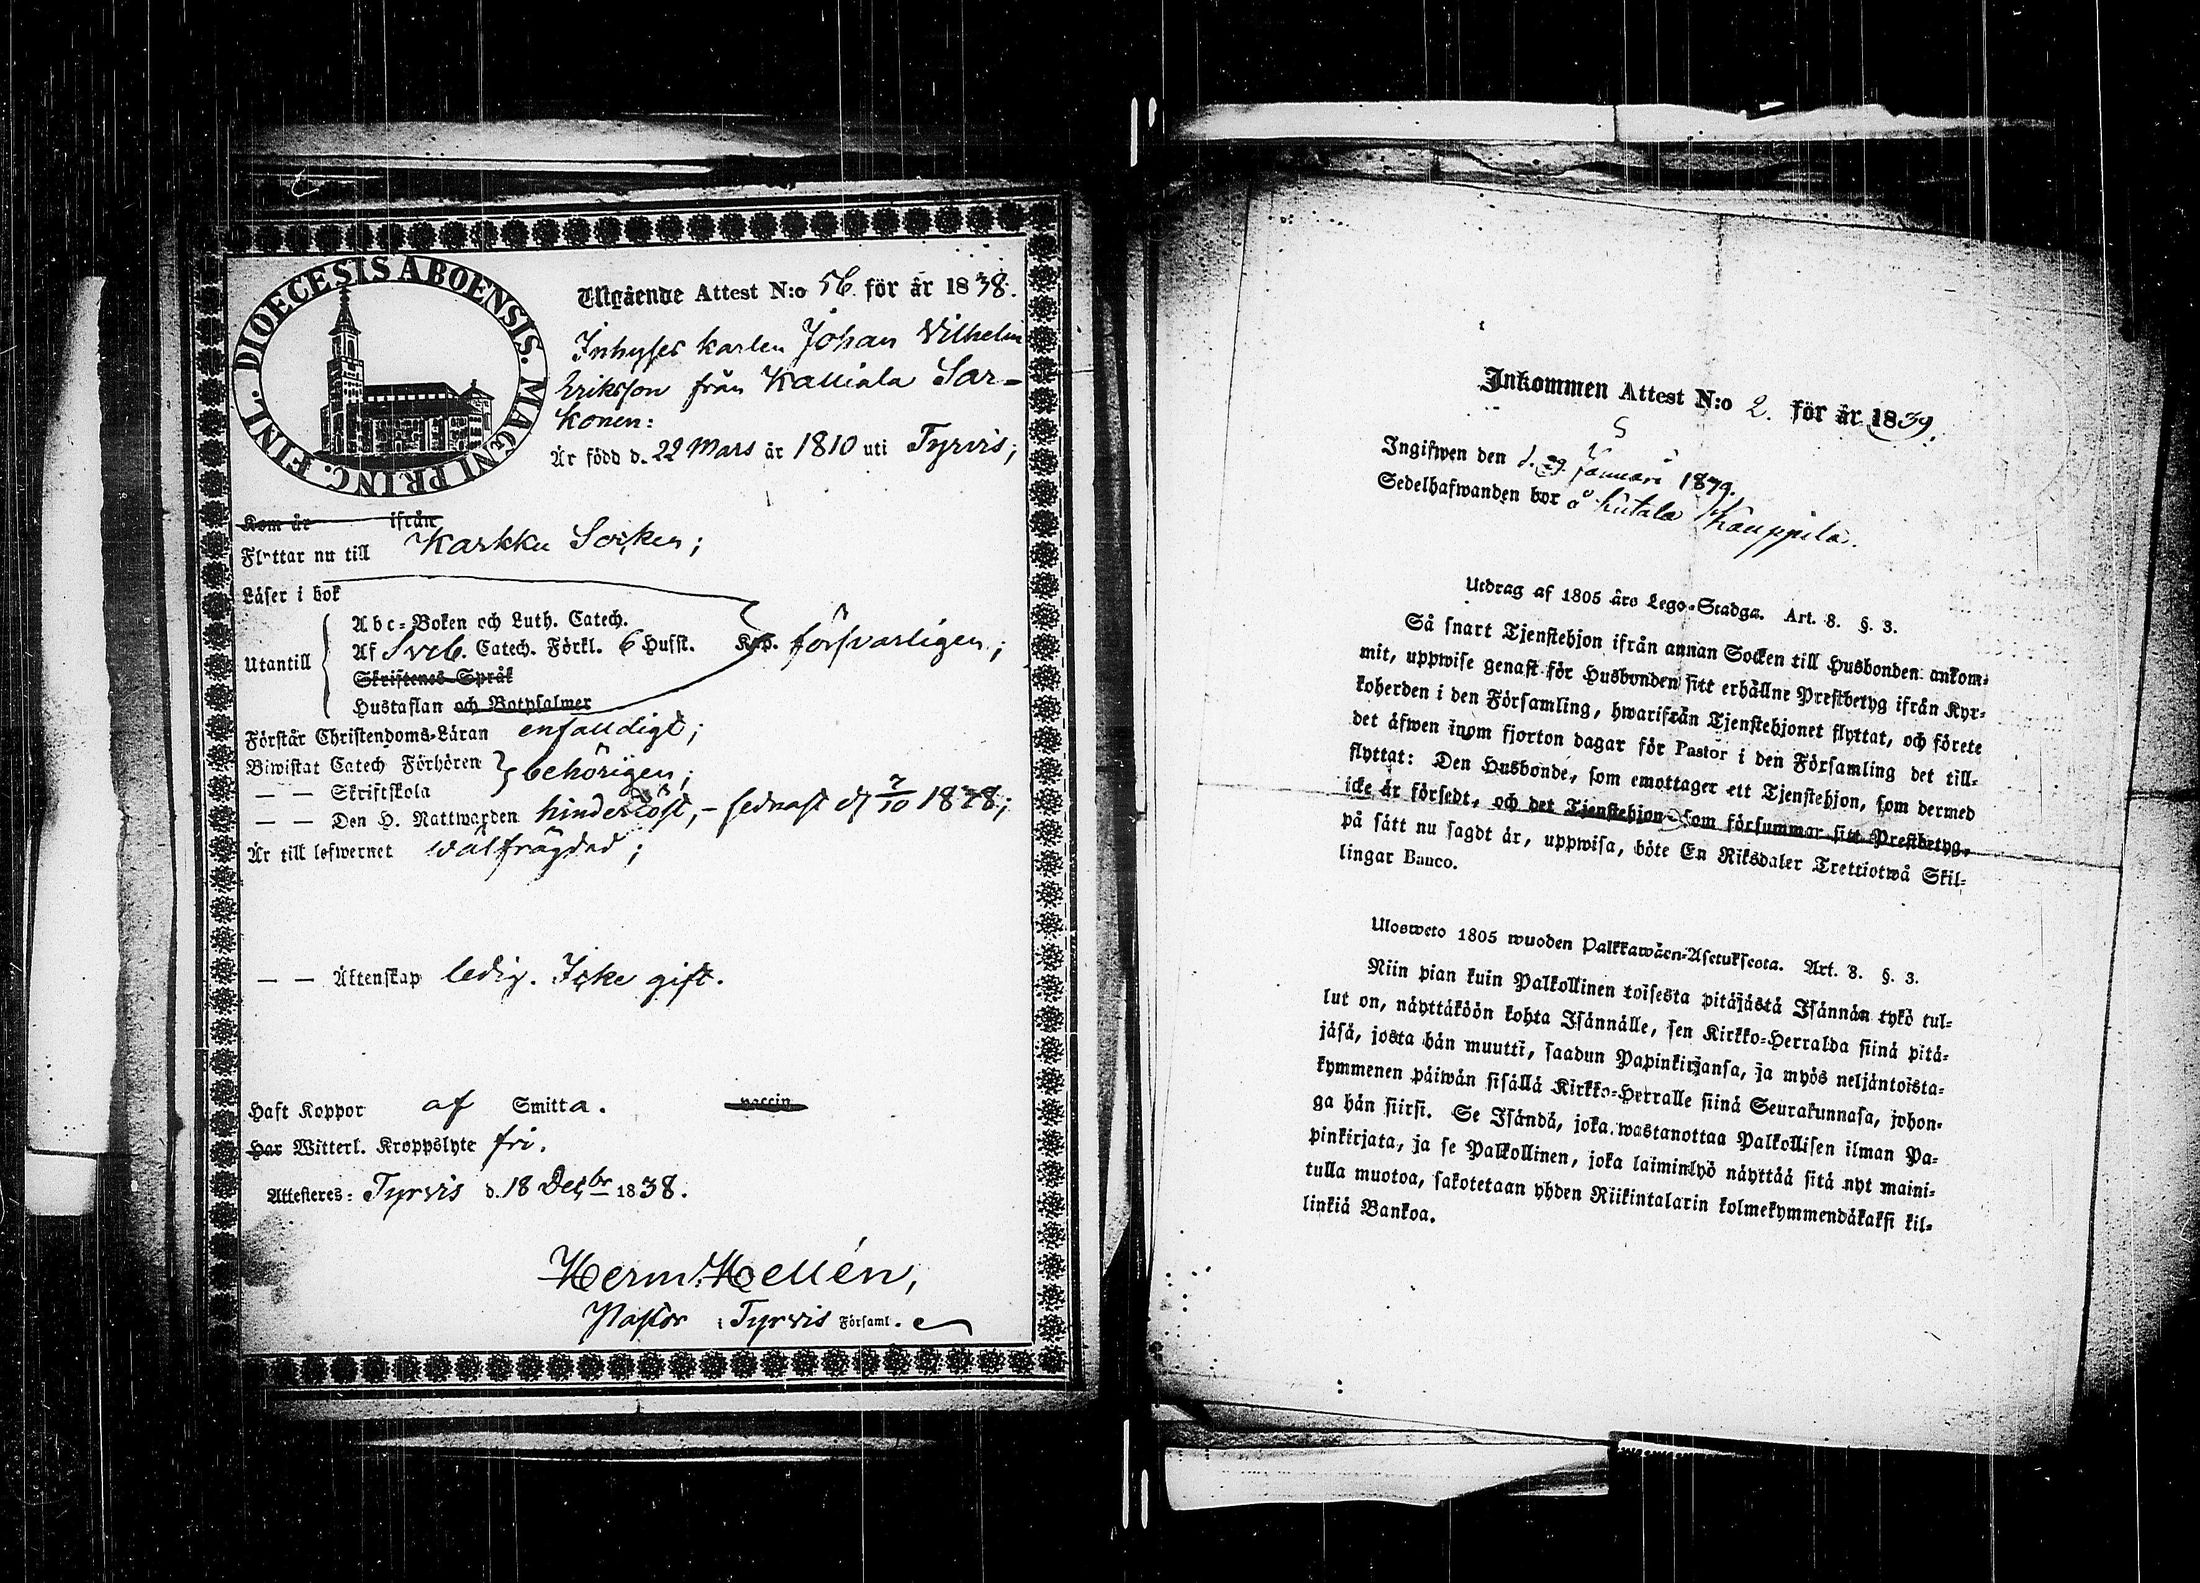 DIOECESIS ABOENSIS. MAGNI PRINC. FINL.
Utgående Attest N:o 56. för år 1838.
Inhyses karlen Johan Vilhelm
Eriksson från Kalliala Sar-
konen:
Är född d. 22 Mars år 1810 uti Tyrvis;
Kom år ifrån
Flyttar nu till Karkku Socken;
Läser i bok
Utantill
Abc-Boken och Luth. Catech.
Af Sveb. Catech. Förkl. 6 Hufst. försvarligen;
Skriftenes Språk
Hustaflan och Botpsalmer
Förstår Christendoms-Läran enfaldigt;
Biwistat Catech Förhören
— — Skriftskola behörigen;
— — Den H. Nattwarden hinderlöst, - sednast d 7/10 1838;
Är till lefwernet välfrägdad;
— — Äktenskap ledig. Icke gift.
Haft Koppor af Smitta. vaccin
Har Witterl. Kroppslyte fri.
Attesteres: Tyrvis d. 18 Decbr 1838.
Herm. Hellén,
Pastor i Tyrvis Församl.
Inkommen Attest N:o 2. för år 1839.
Ingifwen den Januari 1839.
Sedelhafwanden bor å Kutala Kauppila.
Utdrag af 1805 års Lego-Stadga. Art. 8. §. 3.
Så snart Tjenstehjon ifrån annan Socken till Husbonden ankom-
mit, uppwise genast för Husbonden sitt erhållne Prestbetyg ifrån Kyr-
koherden i den Församling, hwarifrån Tjenstehjonet flyttat, och förete
det äfwen inom fjorton dagar för Pastor i den Församling det till-
flyttat: Den Husbonde, som emottager ett Tjenstehjon, som dermed
icke är försedt, och det Tjenstehjon som försummar sitt Prestbetyg,
på sätt nu sagdt är, uppwisa, böte En Riksdaler Trettiotwå Skil-
lingar Banco.
Ulosweto 1805 wuoden Palkkawäen-Asetuksesta. Art. 8. §. 3.
Niin pian kuin Palkollinen toisesta pitäjästä Isännän tykö tul-
lut on, näyttäköön kohta Isännälle, sen Kirkko-Herralda siinä pitä-
jäsä, josta hän muutti, saadun Papinkirjansa, ja myös neljäntoista-
kymmenen päiwän sisällä Kirkko-Herralle siinä Seurakunnasa, johon-
ga hän siirsi. Se Isändä, joka wastanottaa Palkollisen ilman Pa-
pinkirjata, ja se Palkollinen, joka laiminlyö näyttää sitä nyt maini-
tulla muotoa, sakotetaan yhden Riikintalarin kolmekymmendäkaksi kil-
linkiä Bankoa.